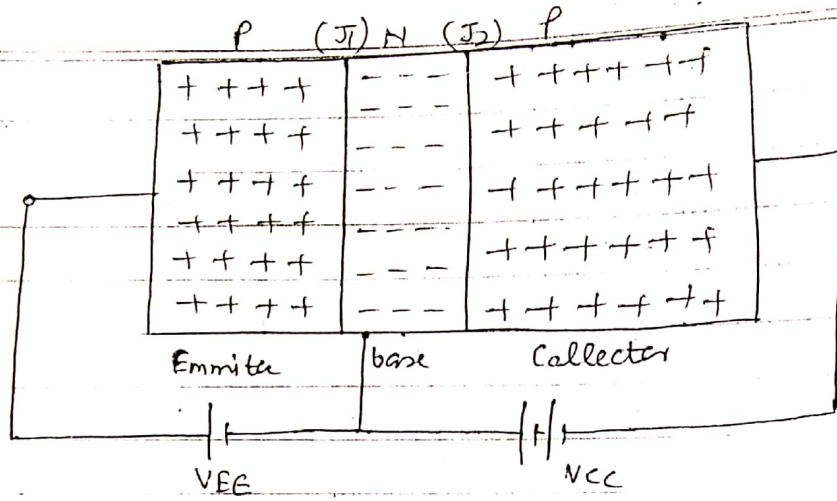 P (J1) N (J2) P
+ + + + - - - + + + + + +
- - -
+ + + + - - - + + + + +
+ + + + - - - + + + + + +
+ + + + - - - + + + + + +
+ + + + - - -
+ + + + - - - + + + + + +
Emmiter base Collector
VEE VCC